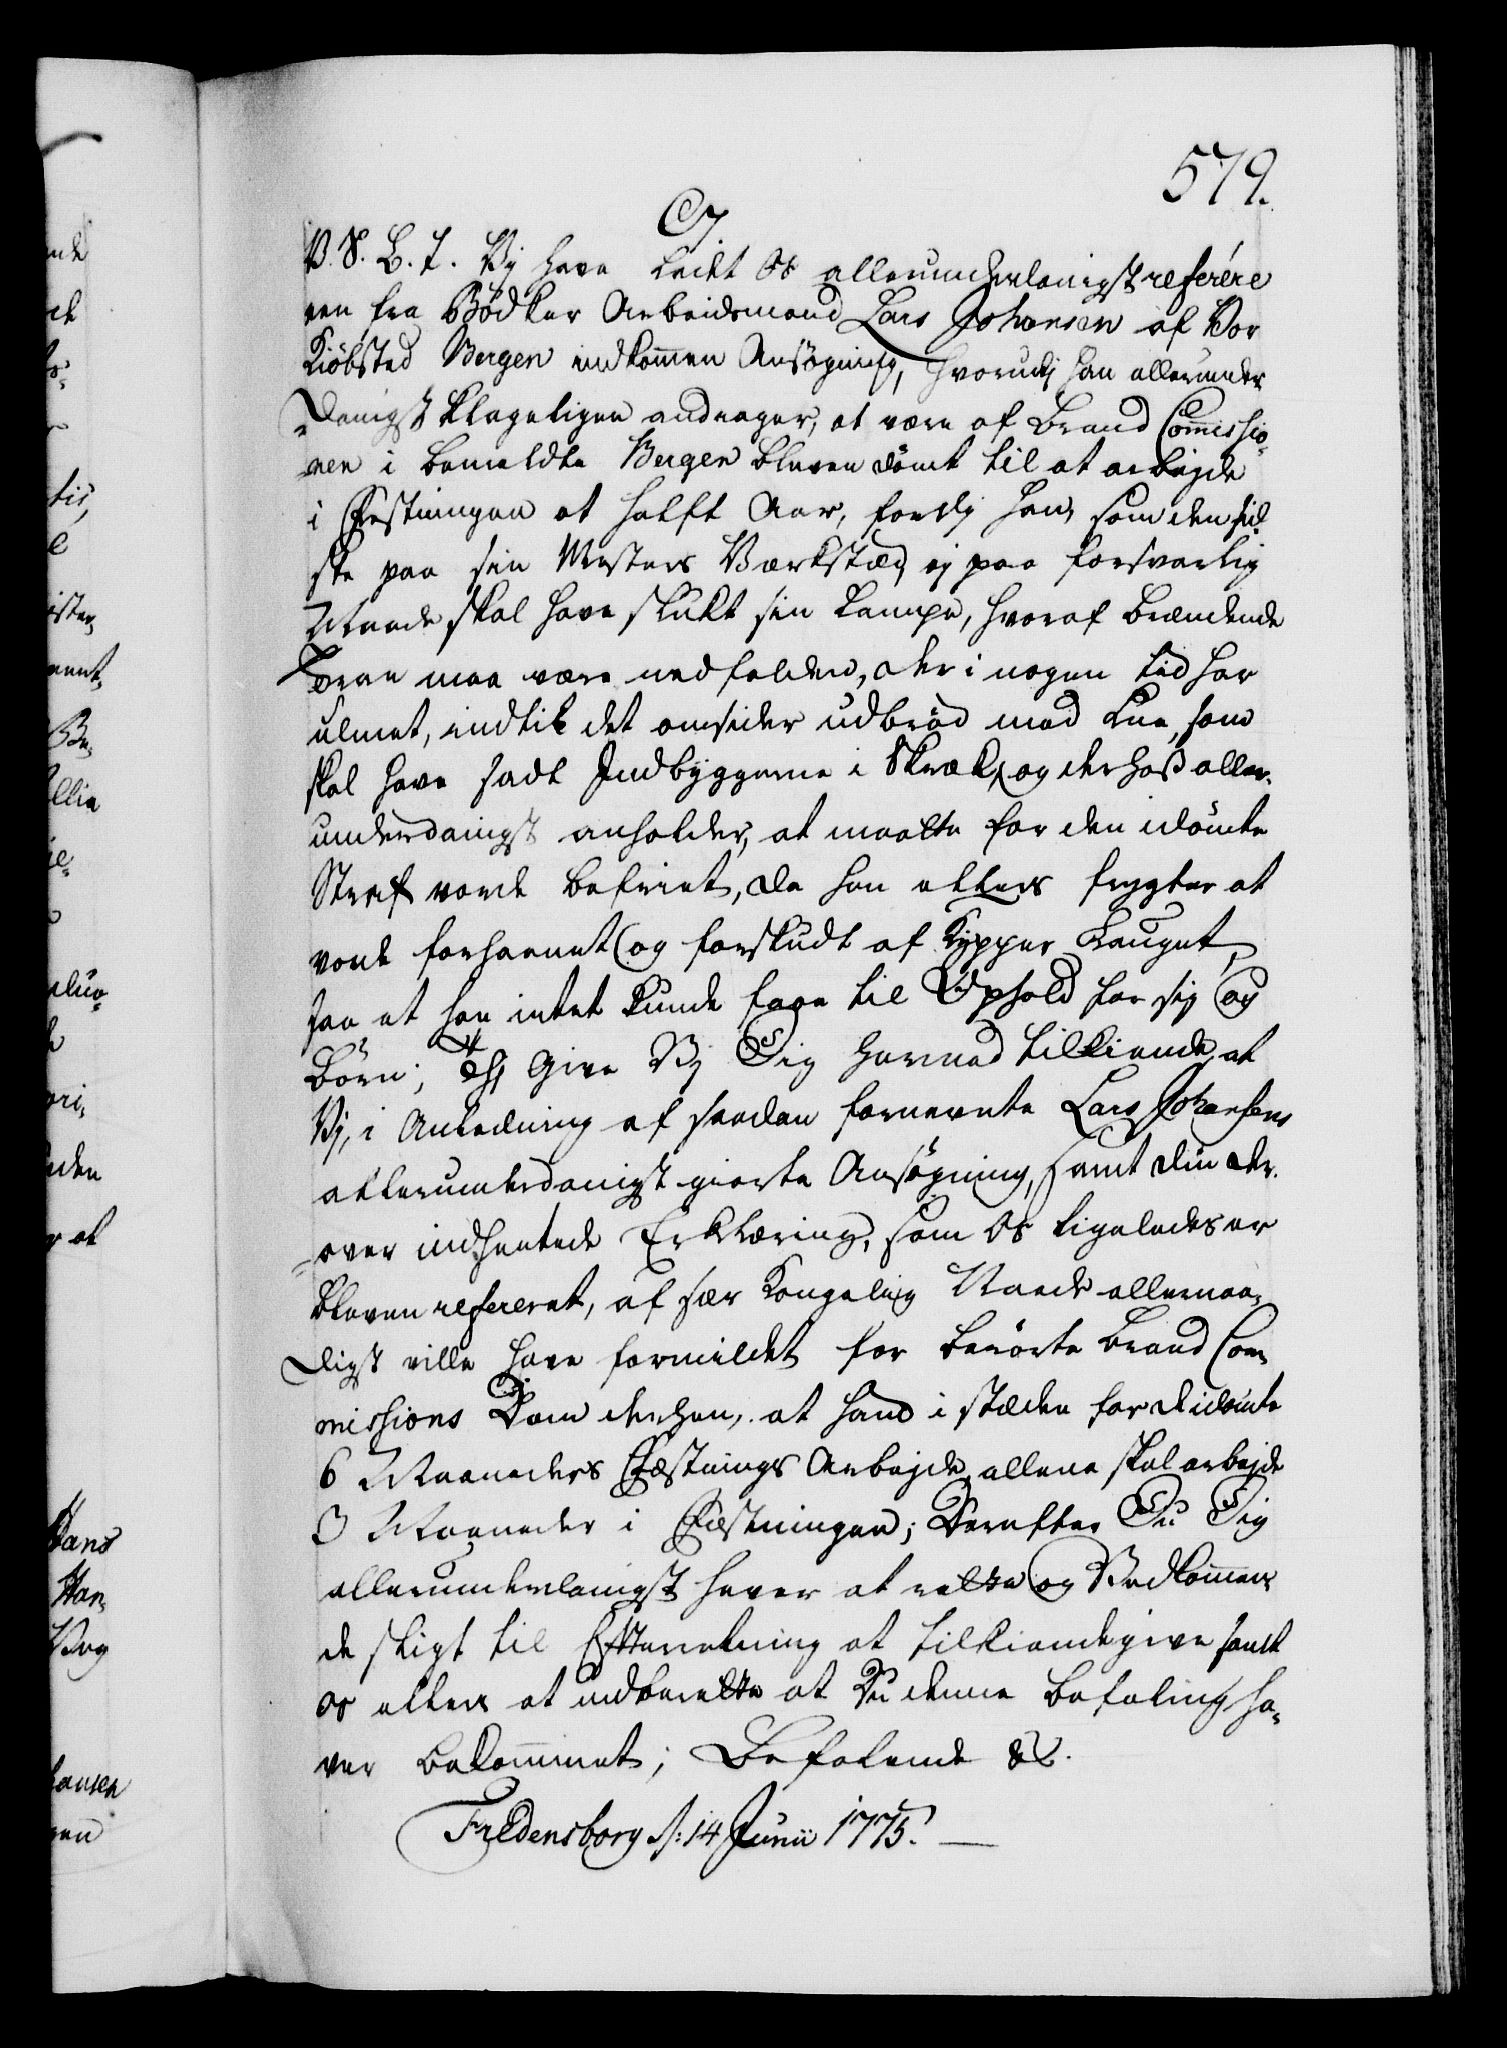 579.
C7.
V. S. B. T. Vi have ladet Os allerunderdanigst referére
een fra Bødker Arbeidsmand Lars Johansen af Vor
Kiøbsted Bergen indkommen Ansøgning, hvorudj han allerunder
danigst klageligen andrager, at være af Brand Commissio-
nen i bemeldte Bergen bleven dömt til at arbejde
i Fæstningen et halft Aar, fordj han, som den sid-
ste paa sin Mesters Værksted, ej paa forsvarlig
Maade skal have slukt sin Lampe, hvoraf brændende
Tran maa være nedfalden, der i nogen tid har
ulmet, indtil det omsider udbrød med Lue, som
skal have sadt Indbyggerne i Skræk, og derhos aller-
underdanigst anholder, at maatte for den idömte
Straf vorde befriet, da han ellers frygter at
vorde forhaanet og forskudt af Kypper Lauget,
saa at han intet kunde faae til Ophold for sig og
Börn; Thi give Vj Dig hermed tilkiende, at
Vj, i Anledning af saadan fornevnte Lars Johansens
allerunderdanigst giorte Ansøgning, samt din der-
over indhentede Erklæring, som Os ligeledes er
bleven refereret, af sær Kongelig Naade allernaa-
digst ville have formildet for berørte Brand Com-
missions Dom derhen, at hand i stæden for de idömte
6 Maaneders Fæstnings Arbejde, allene skal arbejde
3 Maaneder i Fæstningen; Derefter Du Dig
allerunderdanigst haver at rette og Vedkommen-
de sligt til Efterretning at tilkiendegive samt
os ellers at indberette at Du denne befaling ha-
ver bekommet; Befalende &c.
Fredensborg d: 14 Junii 1775.